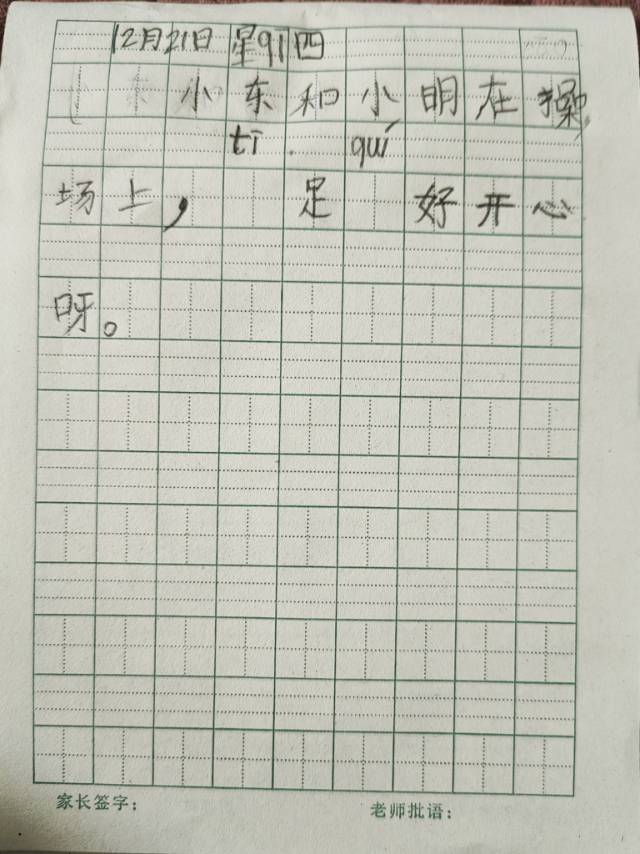 12月21日 星qi四
小东和小明在操
tī quí
场上， 足 好开心
呀。
家长签字： 老师批语：